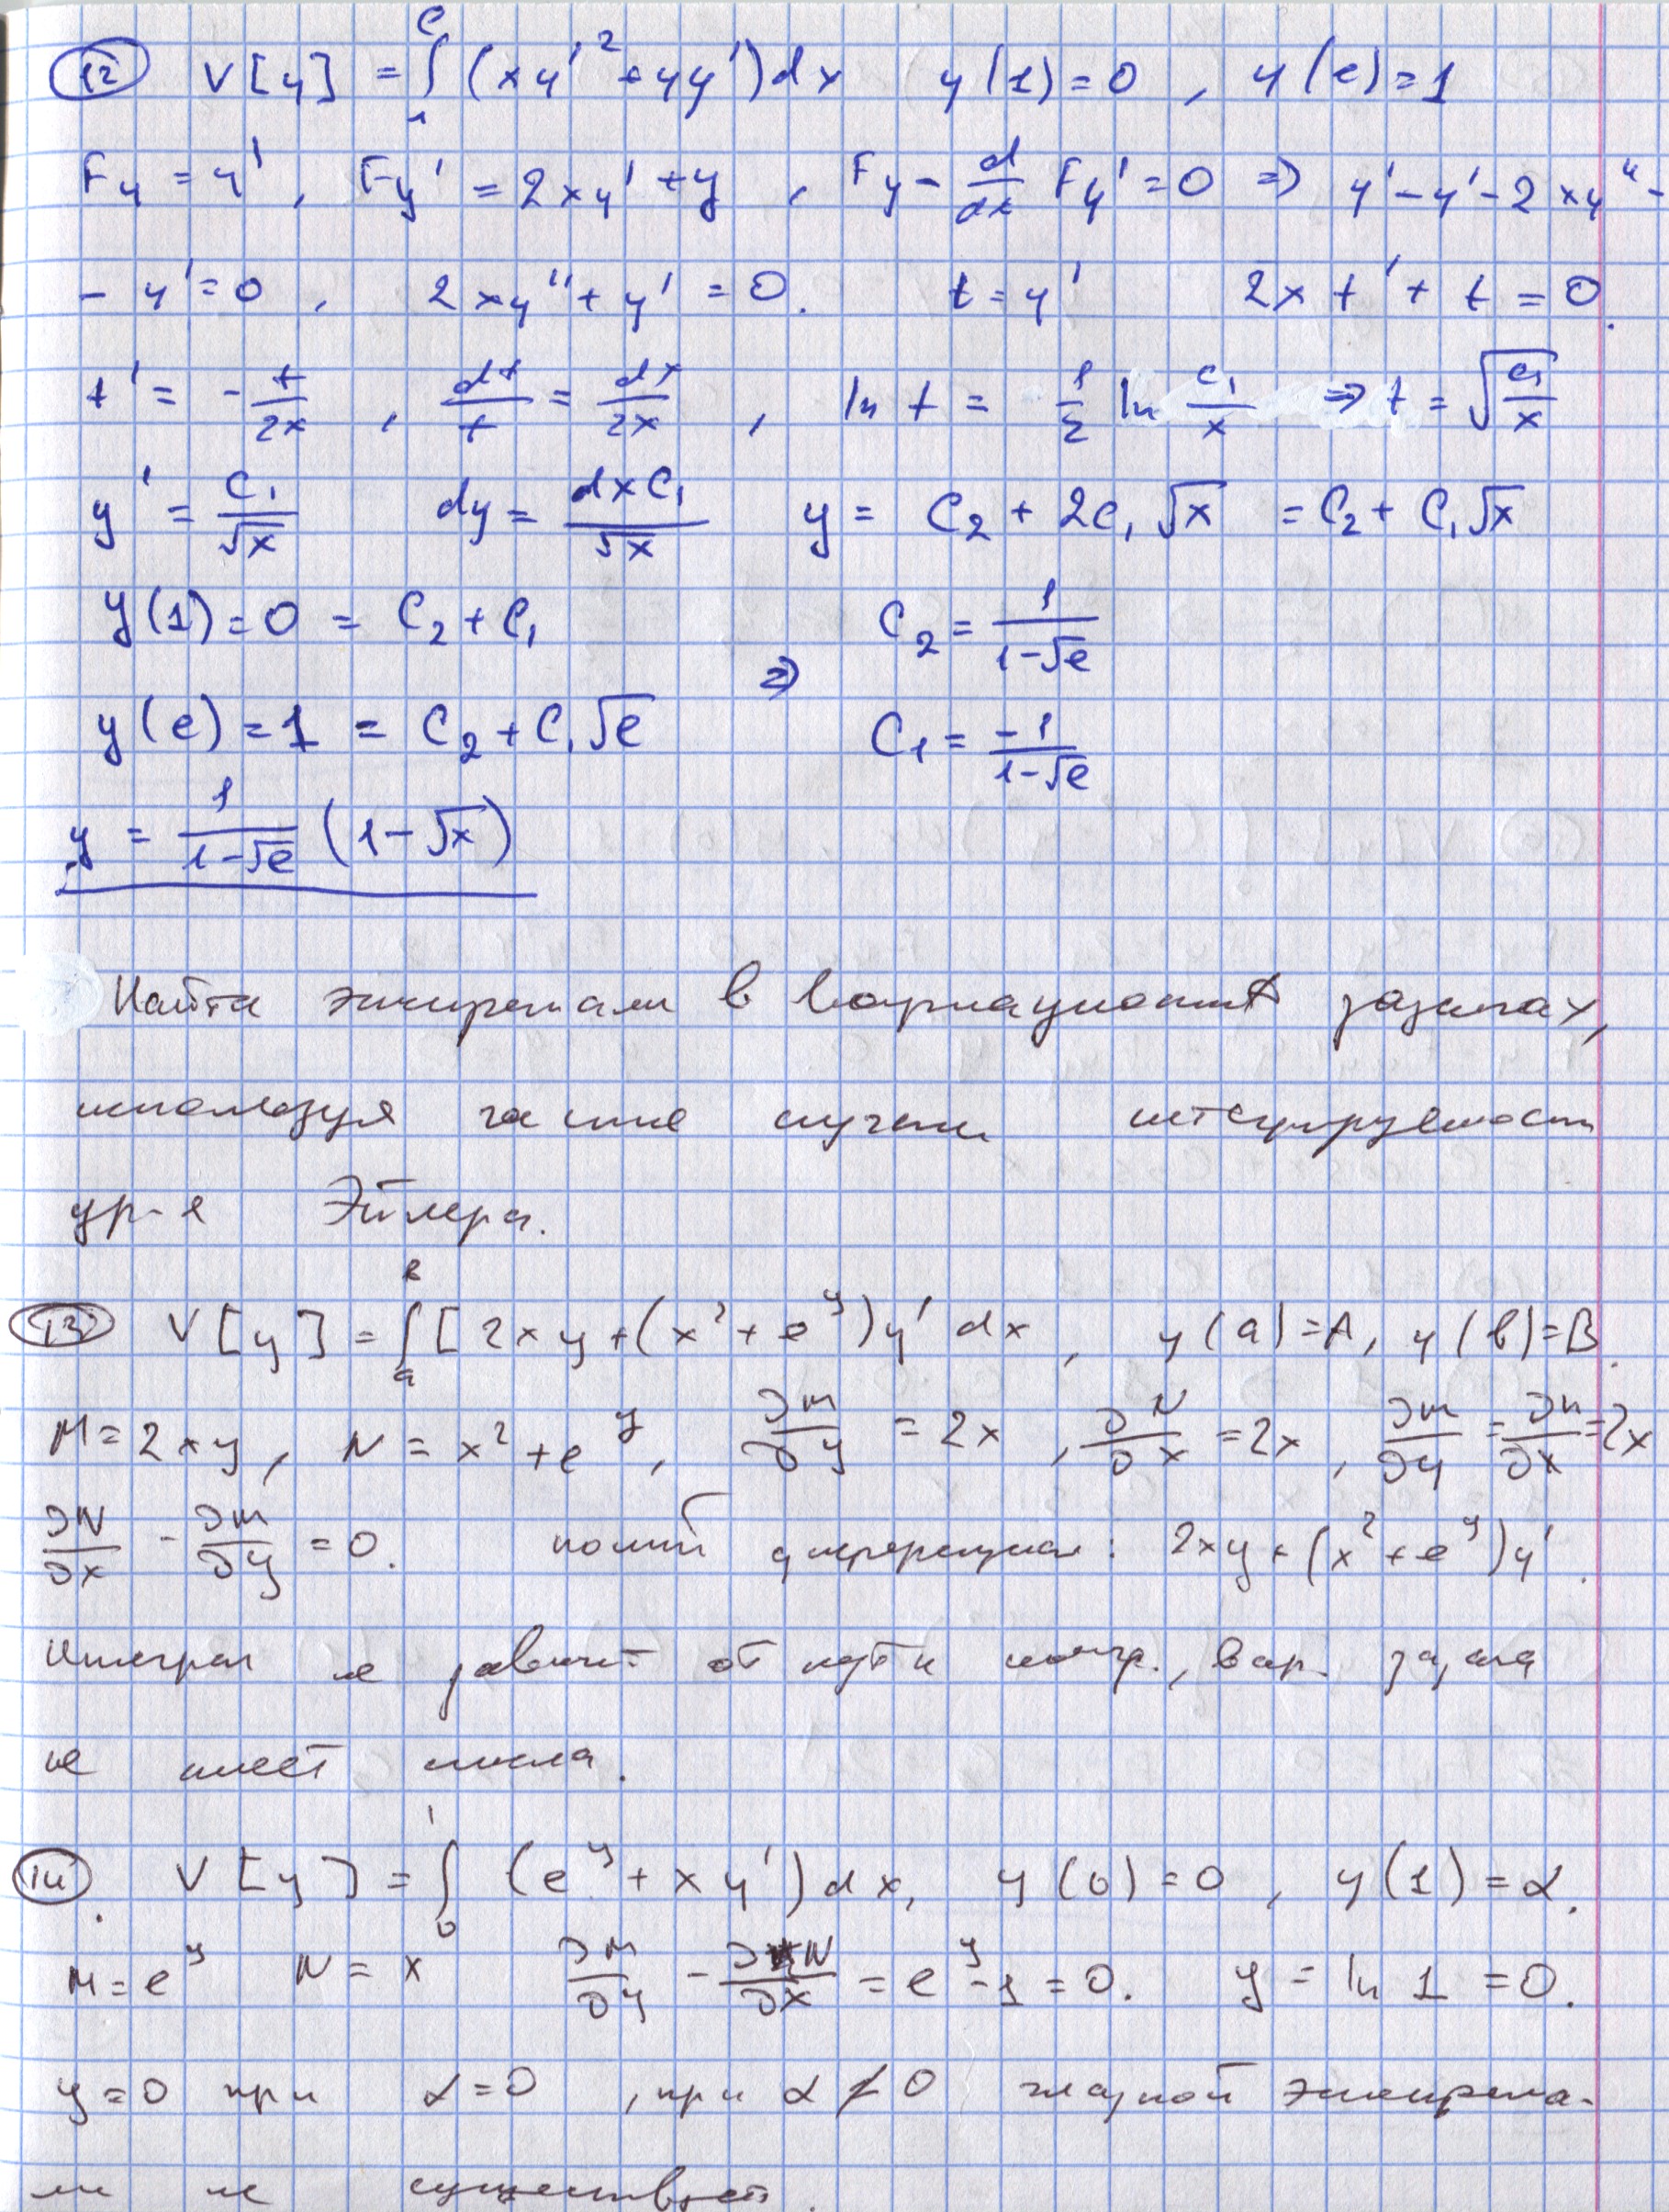 12 V[y] = ∫₁ᵉ (xy'² + yy')dx y(1)=0 , y(e)=1
F_y = y' , F_y' = 2xy' + y , F_y - d/dx F_y' = 0 ⇒ y' - y' - 2xy'' -
- y' = 0 , 2xy'' + y' = 0. t = y' 2xt' + t = 0.
t' = - t/2x , dt/t = dx/2x , ln t = 1/2 ln c₁/x ⇒ t = √(c₁/x)
y' = c₁/√x dy = dx c₁/√x y = C₂ + 2c₁√x = C₂ + C₁√x
y(1) = 0 = C₂ + C₁ C₂ = 1/(1-√e)
⇒
y(e) = 1 = C₂ + C₁√e C₁ = -1/(1-√e)
y = 1/(1-√e) (1-√x)
Найти экстремали в вариационных задачах,
используя частные случаи интегрируемости
ур-я Эйлера.
13 V[y] = ∫ₐᵇ [2xy + (x² + e^y)y' dx , y(a)=A, y(b)=B.
M = 2xy , N = x² + e^y , ∂M/∂y = 2x , ∂N/∂x = 2x , ∂M/∂y = ∂N/∂x = 2x
∂N/∂x - ∂M/∂y = 0. полный дифференциал: 2xy + (x² + e^y)y'.
Интеграл не зависит от пути интегр., вар. задача
не имеет смысла.
14. V[y] = ∫₀¹ (e^y + xy')dx, y(0)=0 , y(1)=α.
M = e^y N = x ∂M/∂y - ∂N/∂x = e^y - 1 = 0. y = ln 1 = 0.
y=0 при α=0 , при α≠0 гладкой экстрема-
ли не существует.